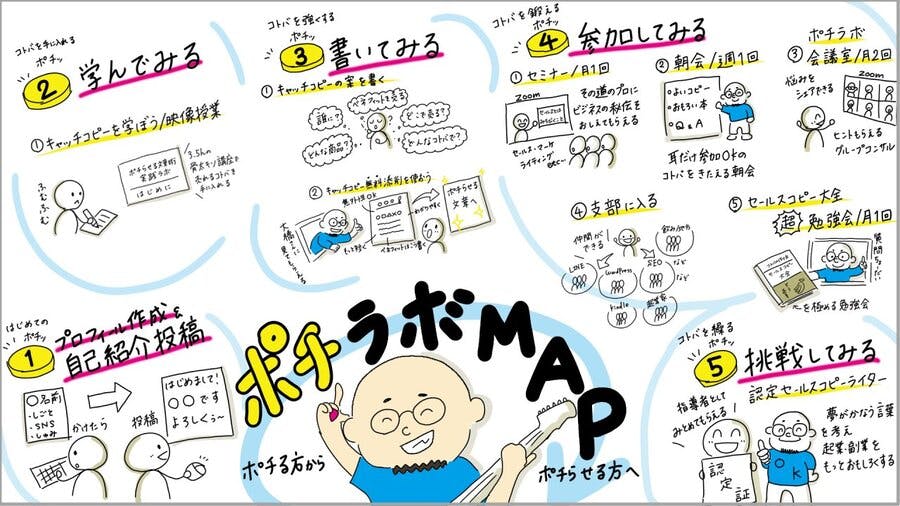 ポチラボMAP
ポチる方から
ポチらせる方へ
はじめての
ポチッ
1
プロフィール作成を
自己紹介投稿
○名前
・しごと
・SNS
・しゅみ
かけたら
投稿
はじめまして!
○○です
よろしくぅ〜
コトバを手に入れる
ポチッ
2
学んでみる
①キャッチコピーを学ぼう/映像授業
ふむふむ
ポチらせる文章術
実践ラボ
はじめに
3.5hの
骨太キソ講座で
売れるコトバを
手に入れる
コトバを強くする
ポチッ
3
書いてみる
①キャッチコピーの案を書く
誰に?
ベネフィットを売る
どこで売る?
どんな商品?
どんなコトバで?
②キャッチコピー無料添削を使おう
大橋さんに
見てもらえる
もっと軽く
ベネフィットはこう書く
ポチらせる
文章へ
コトバを鍛える
ポチッ
4
参加してみる
①セミナー/月1回
zoom
その道のプロに
ビジネスの秘伝を
おしえてもらえる
セールス・マーケ
ライティング
etc…
②朝会/週1回
・よいコピー
・おもろい本
・Q&A
耳だけ参加OKの
コトバをきたえる朝会
ポチラボ
③会議室/月2回
悩みを
シェアできる
zoom
ヒントもらえる
グループコンサル
④支部に入る
仲間が
できる
LINE
WordPress
SEO
など
kindle
起業家
など
⑤セールスコピー大全
超
勉強会/月1回
質問ちょうだい
を極める勉強会
コトバを操る
ポチッ
5
挑戦してみる
認定セールスコピーライター
指導者として
みとめてもらえる!
認定証
OK
夢がかなう言葉
を考え
起業・副業を
もっとおもしろくする